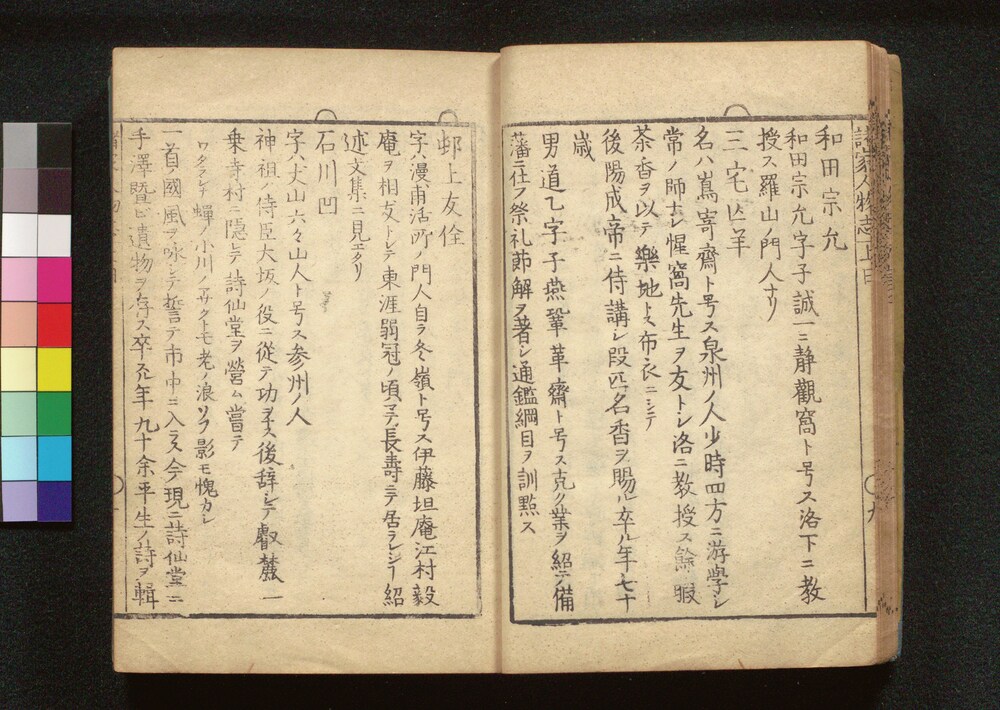 和田宗允
和田宗允字子誠一ニ静觀窩ト号ス洛下ニ教
授ス羅山ノ門人ナリ
三宅亡羊
名ハ嶌寄齋ト号ス泉州ノ人少時四方ニ游學シ
常ノ師ナシ惺窩先生ヲ友トシ洛ニ教授ス餘暇
茶香ヲ以テ樂地トス布衣ニシテ
後陽成帝ニ侍講シ段匹名香ヲ賜ル卒ル年七十
歳
男道乙字子燕鞏革齋ト号ス克ク業ヲ紹ニノ備
藩ニ仕フ祭礼節解ヲ著シ通鑑綱目ヲ訓點ス
邨上友佺
字ハ漫甫活所ノ門人自ラ冬嶺ト号ス伊藤坦庵江村毅
庵ヲ相友トシテ東涯弱冠ノ頃マテ長壽ニテ居ラレシ一紹
述文集ニ見エタリ
石川凹
字ハ丈山六々山人ト号ス参州ノ人
神祖ノ侍臣大坂ノ役ニ從テ功ヲ後辞シテ叡麓一
乗寺村ニ隠レテ詩仙堂ヲ營ム嘗テ
ワタラシナ蟬ノ小川ノアサクトモ老ノ浪ソフ影モ愧カシ
一首ノ國風ヲ咏シテ誓テ市中ニ入ラス今現ニ詩仙堂ニ
手澤暨ヒ遺物ヲ存ス卒スル年九十余平生ノ詩ヲ輯